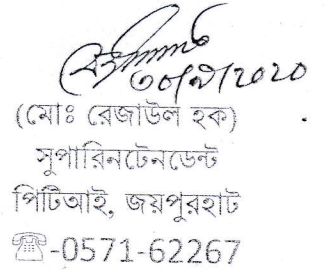 ৩০/৯/২০২০
(মোঃ রেজাউল হক)
সুপারিনটেনডেন্ট
পিটিআই, জয়পুরহাট
☏-0571-62267